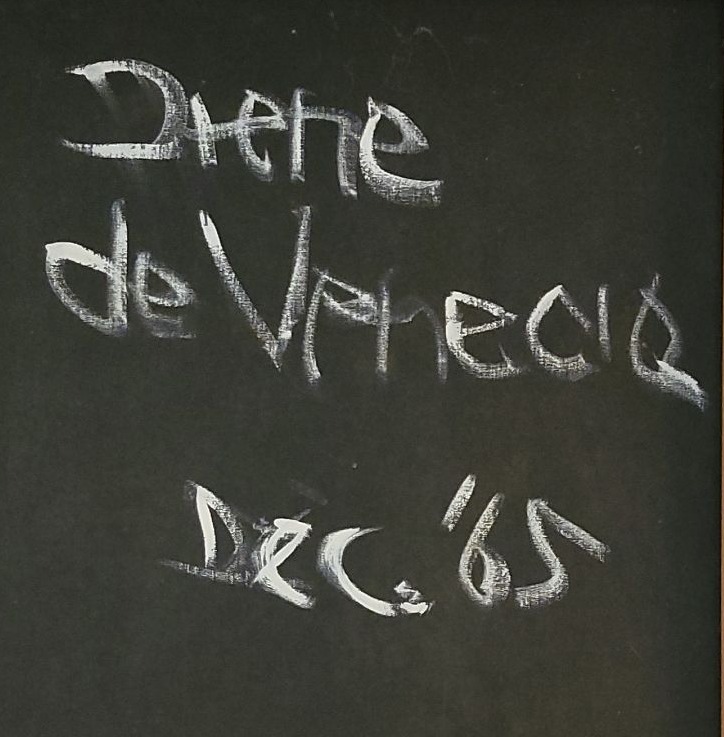 Diene
de Venecia
Dec. '65